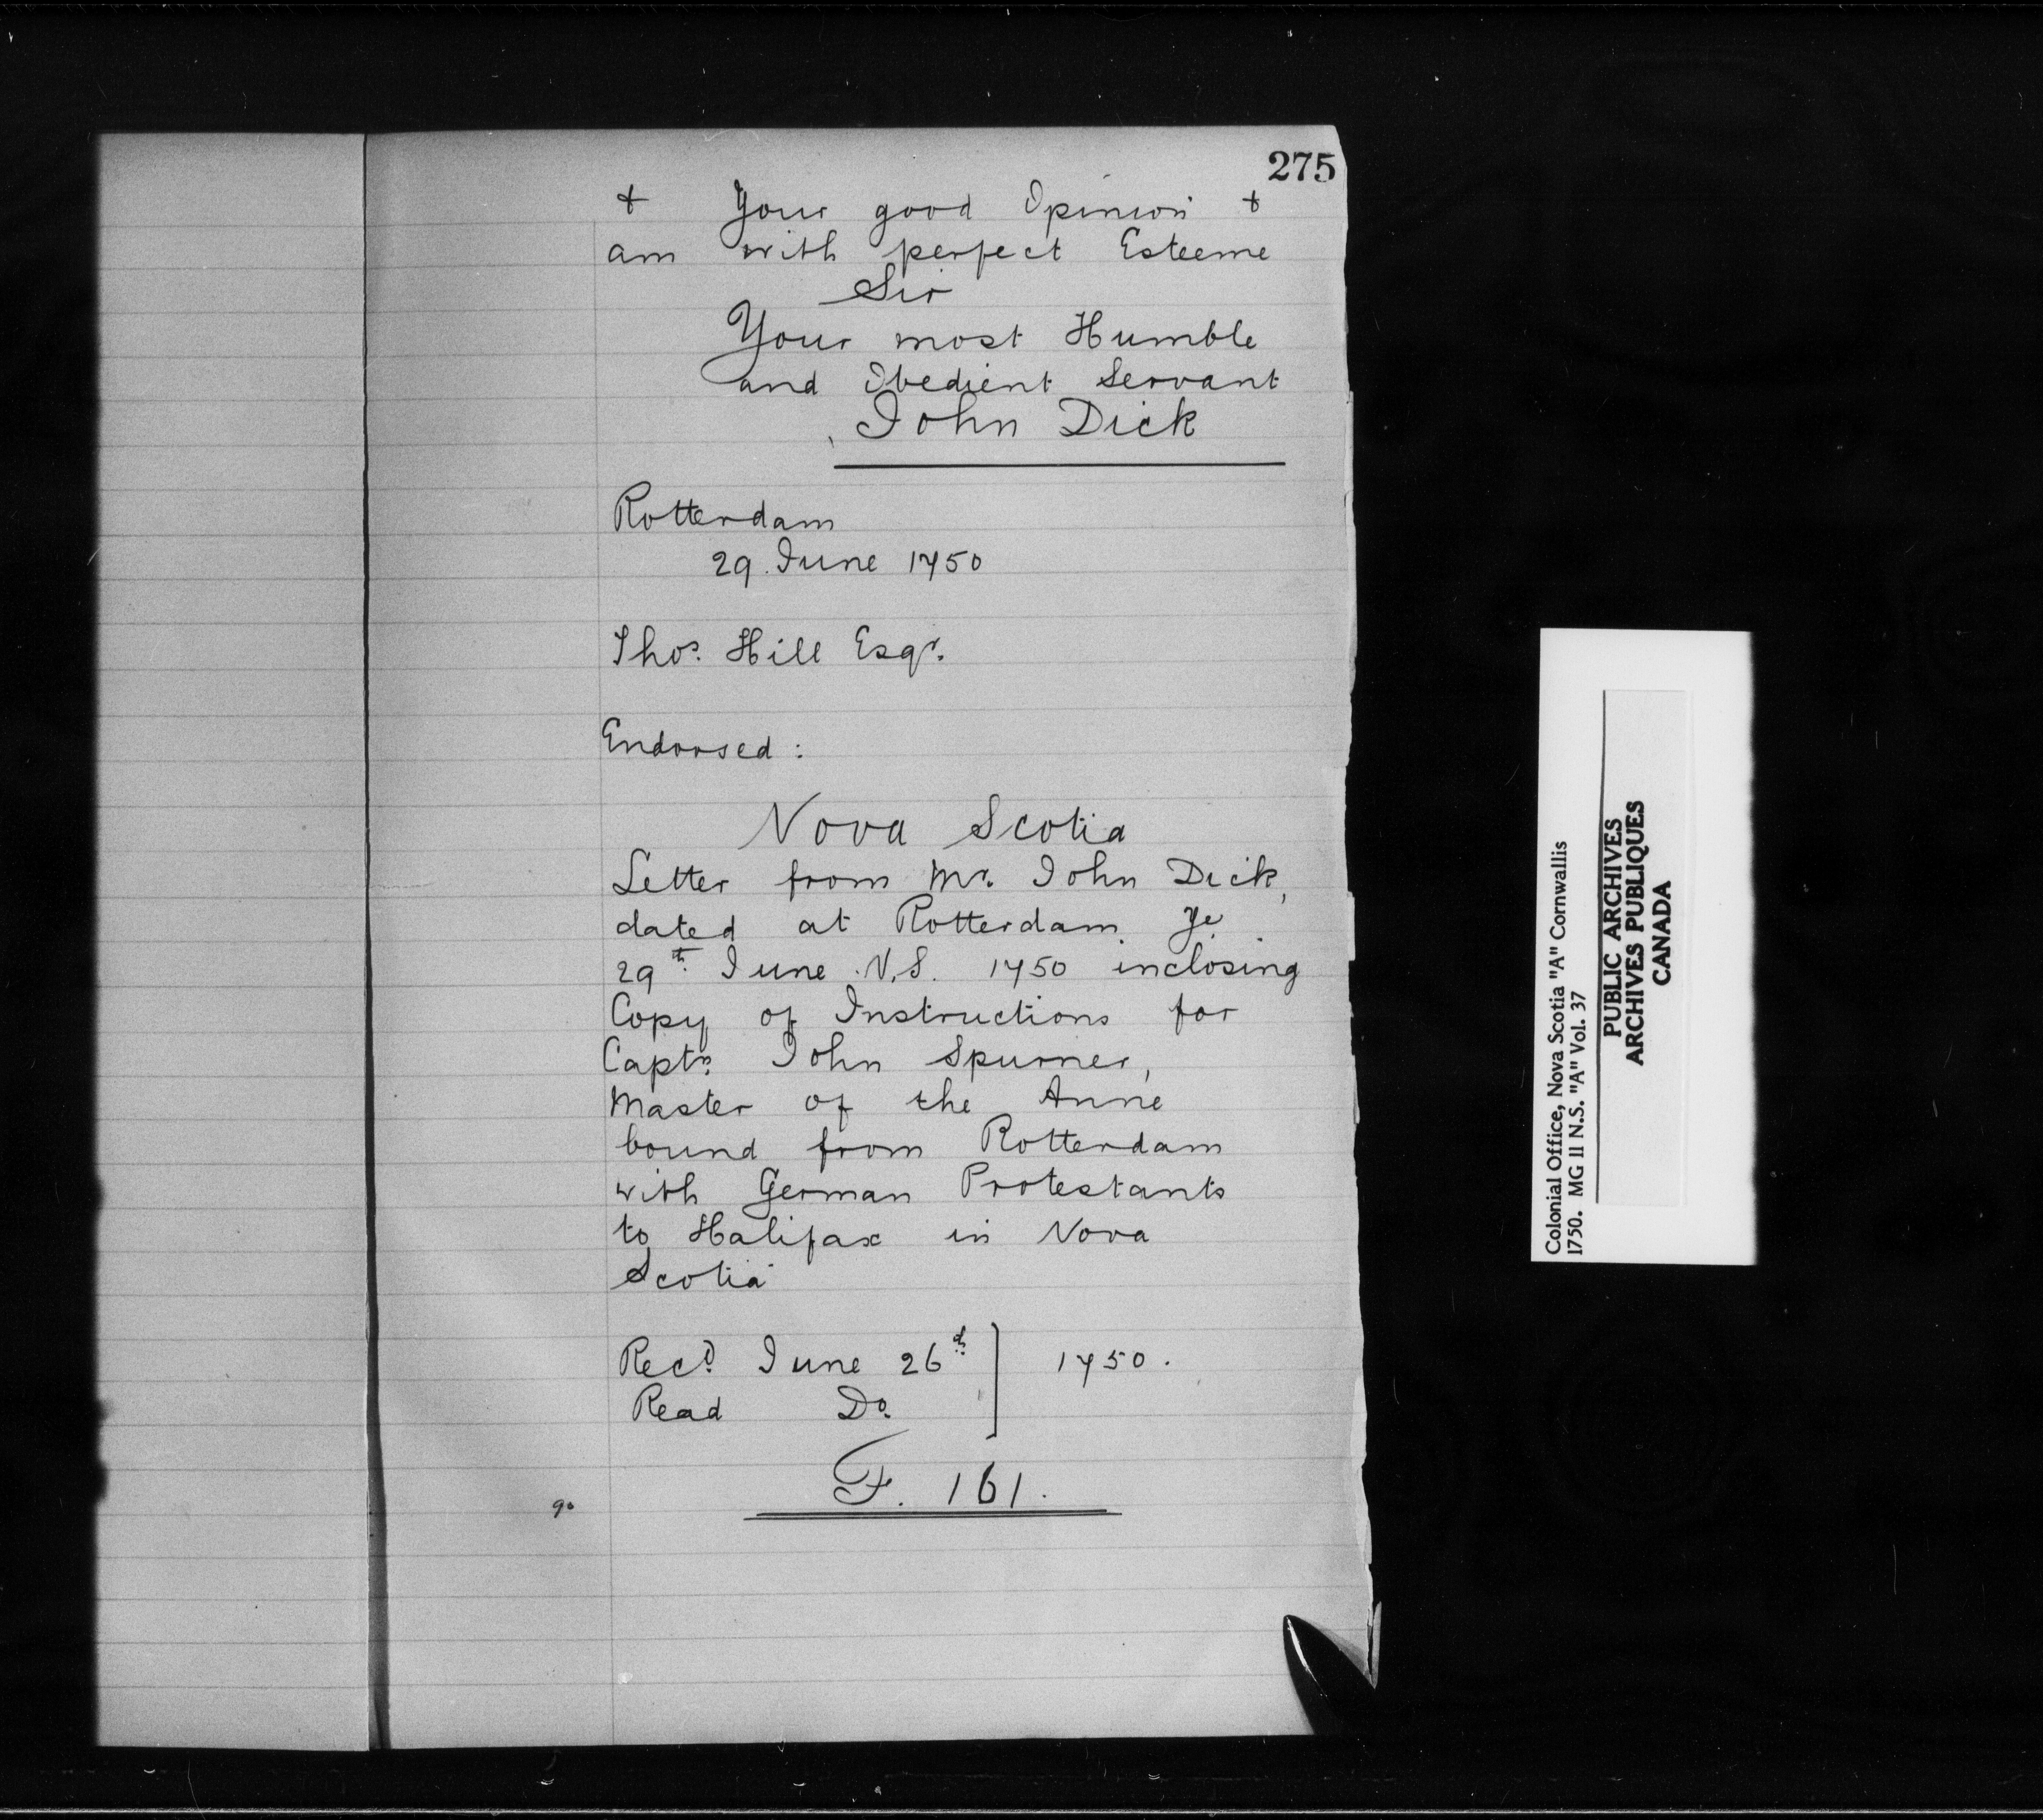 275
& Your good Opinion &
am with perfect Esteeme
Sir
Your most Humble
and Obedient Servant
John Dick
Rotterdam
29. June 1750
Thos. Hill Esqr.
Endorsed:
Nova Scotia
Letter from Mr. John Dick,
dated at Rotterdam ye
29th June N.S. 1750 inclosing
Copy of Instructions for
Captn. John Spurrier,
Master of the Anne
bound from Rotterdam
with German Protestants
to Halifax in Nova
Scotia
Recd. June 26th 1750.
Read Do.
F. 161.
Colonial Office, Nova Scotia "A" Cornwallis
1750. MG 11 N.S. "A" Vol. 37
PUBLIC ARCHIVES
ARCHIVES PUBLIQUES
CANADA